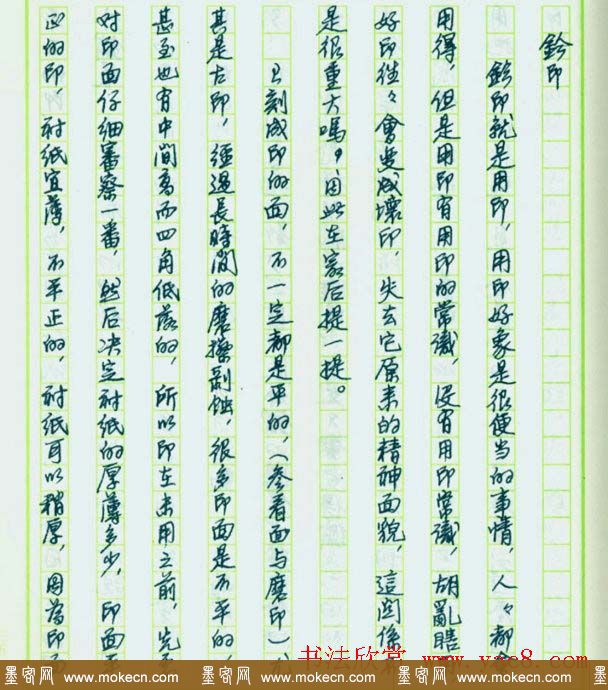 鈐印
鈐印就是用印，用印好象是很便当的事情，人々都會
用得，但是用印有用印的常識，没有用印常識，胡亂
好印往々會變成壞印，失去它原来的精神面貌，這関係
是很重大嗎，因此在最后提一提。
刻成印的面，不一定都是平的，（參看面与磨印）
其是古印，經過長時間的磨擦剝蝕，很多印面是不平的，
甚至也有中間高而四角低落的，所以印在未用之前，先
对印面仔细審察一番，然后决定衬纸的厚薄多少，印面
正的印，衬纸宜薄，不平正的，衬纸可以稍厚，因為印
书法欣赏 www.yac8.com
墨客网 www.mokecn.com 墨客网 www.mokecn.com 墨客网 www.mokecn.com